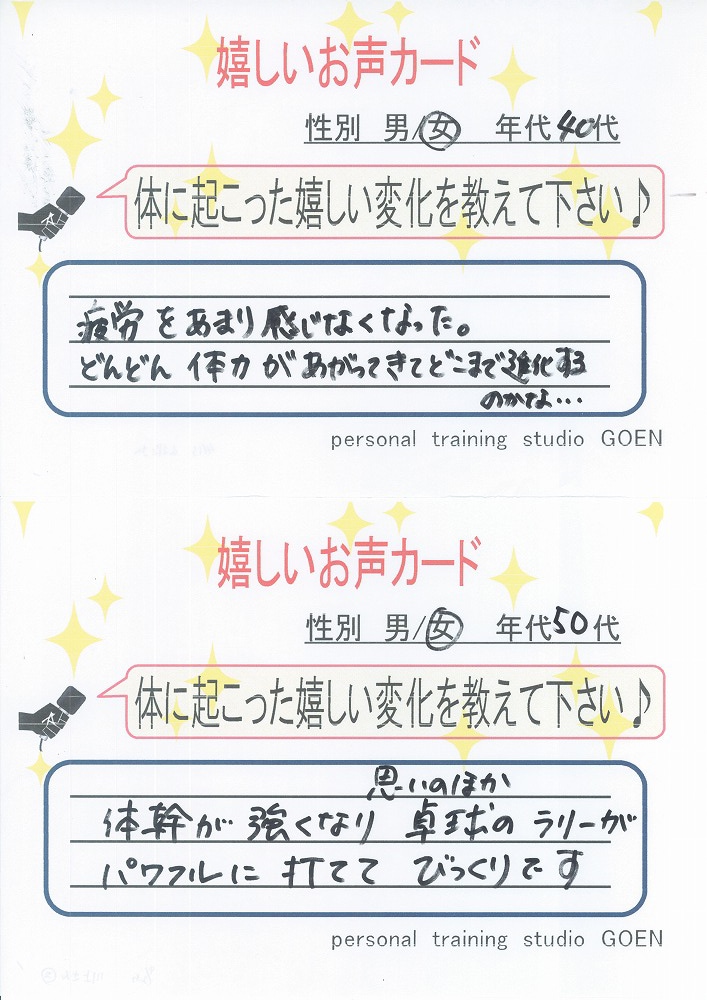 嬉しいお声カード
性別 男/女 年代40代
体に起こった嬉しい変化を教えて下さい♪
疲労をあまり感じなくなった。
どんどん体力があがってきてどこまで進化する
のかな...
personal training studio GOEN
嬉しいお声カード
性別 男/女 年代50代
体に起こった嬉しい変化を教えて下さい♪
思いのほか
体幹が強くなり卓球のラリーが
パワフルに打ててびっくりです
personal training studio GOEN